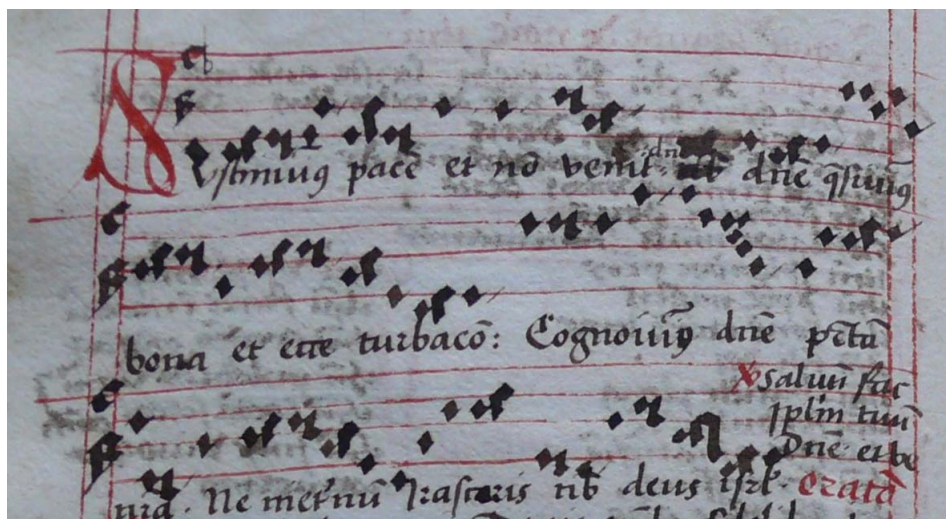 Sustinuimꝰ pacē et nō venit: dne q̄siuimꝰ
bona et ecce turbacō: Cognouimꝰ dn̄e pc̄tā
℣ saluū fac
pplm̄ tuū
Dn̄e et be
nr̄a. Ne ī ꝑpetuū Irascaris nb̄ deus isrl. erata